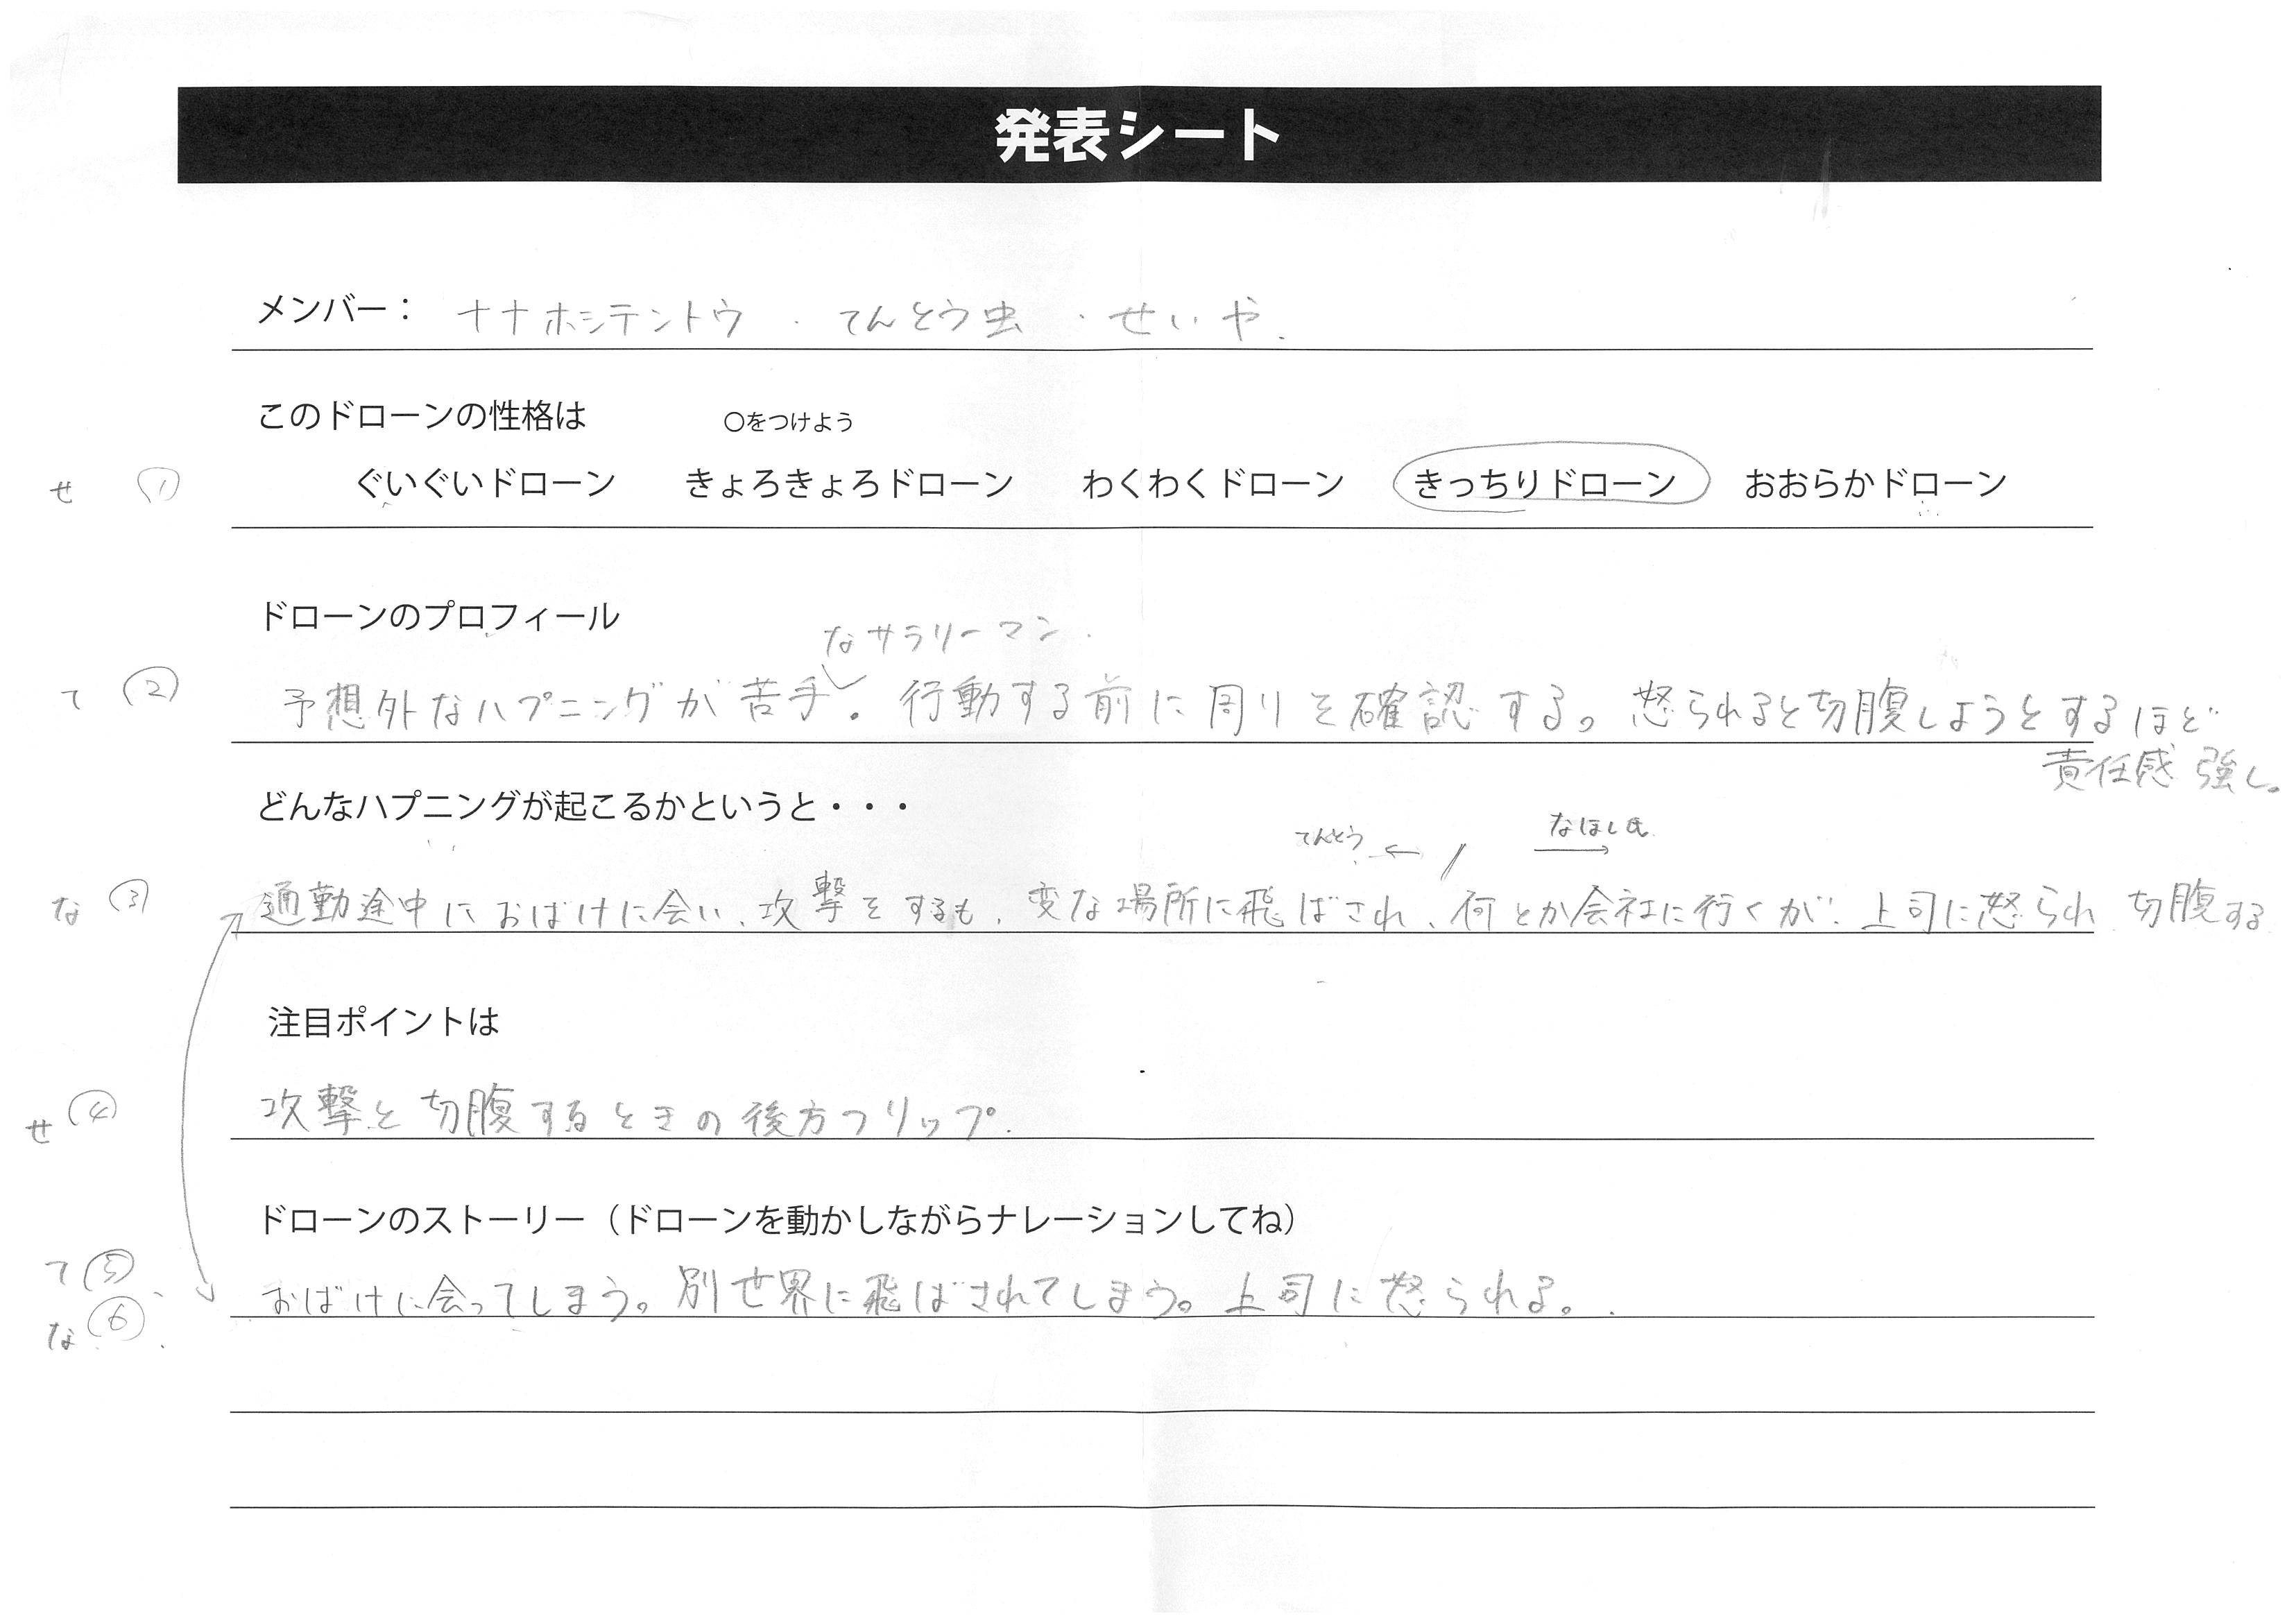 発表シート
メンバー： ナナホシテントウ ・ てんとう虫 ・ せいや.
このドローンの性格は 〇をつけよう
せ ① ぐいぐいドローン きょろきょろドローン わくわくドローン きっちりドローン おおらかドローン
ドローンのプロフィール
なサラリーマン.
て ② 予想外なハプニングが苦手。行動する前に周りを確認する。怒られると切腹しようとするほど
責任感強し。
どんなハプニングが起こるかというと・・・
てんとう ← / なほし →
な ③ 通勤途中におばけに会い、攻撃をするも、変な場所に飛ばされ、何とか会社に行くが、上司に怒られ 切腹する
注目ポイントは
せ ④ 攻撃と切腹するときの後方フリップ.
ドローンのストーリー（ドローンを動かしながらナレーションしてね）
て ⑤、 おばけに会ってしまう。別世界に飛ばされてしまう。上司に怒られる。
な ⑥.